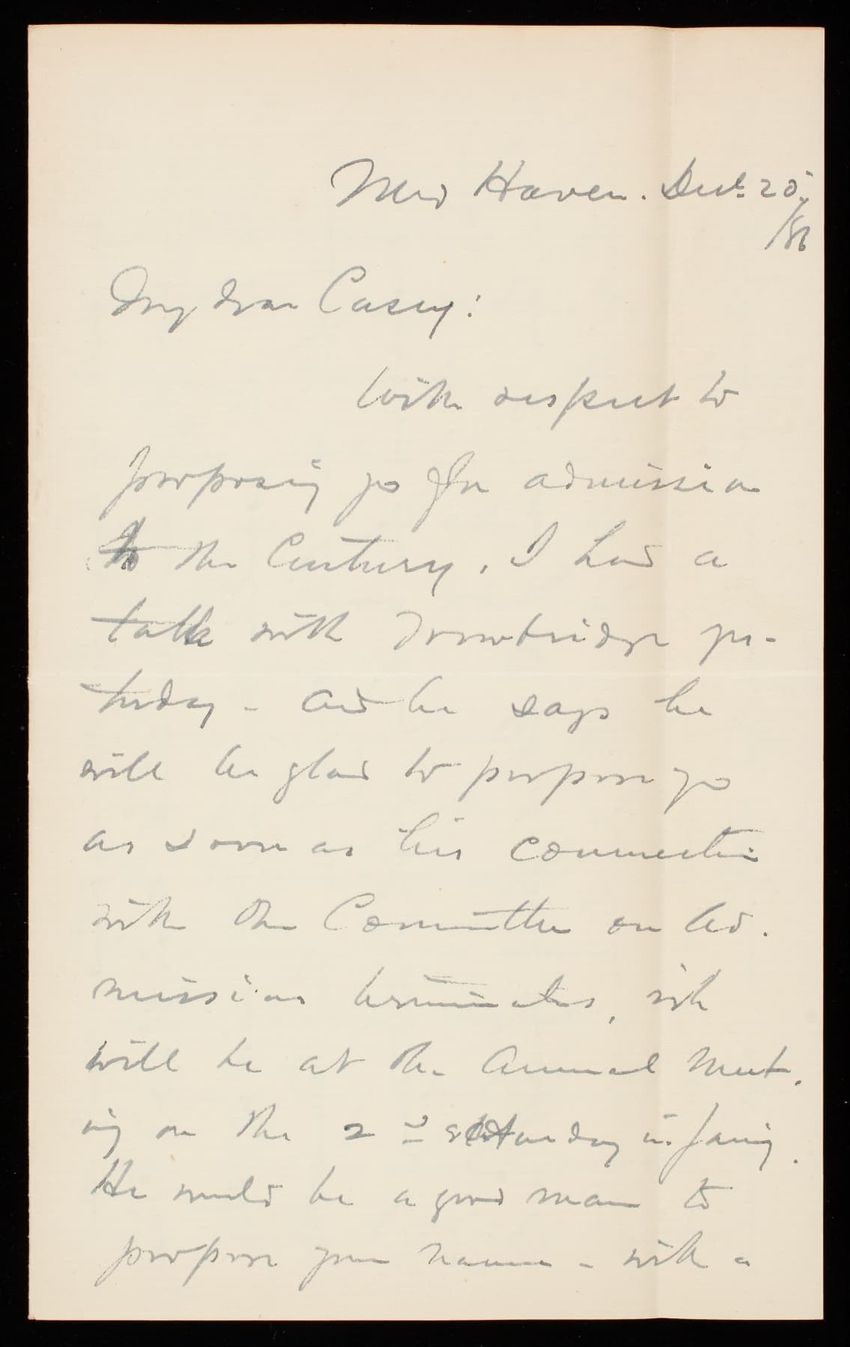 New Haven. Dec. 25,
/86
My dear Casey:
With respect to
proposing yo for admission
to the Century, I had a
talk with Trowbridge yes-
terday - and he says he
will be glad to propose yo
as soon as his connection
with the Committee on Ad-
mission terminates, wh
will be at the Annual Meet-
ing on the 2d Saturday in Jany.
He would be a good man to
propose your name - with a